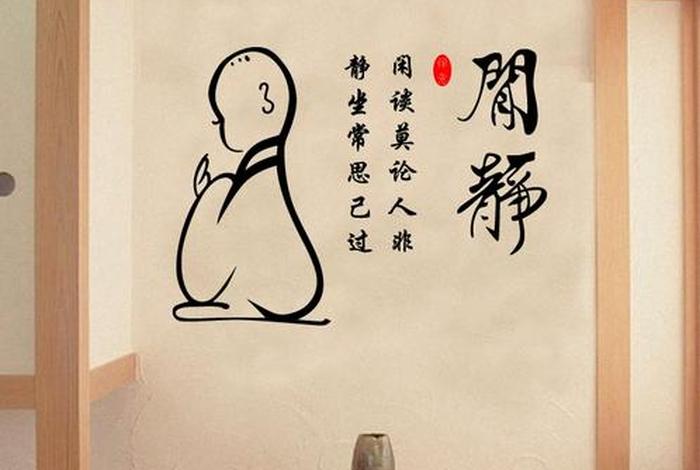 閒靜
闲谈莫论人非
静坐常思己过